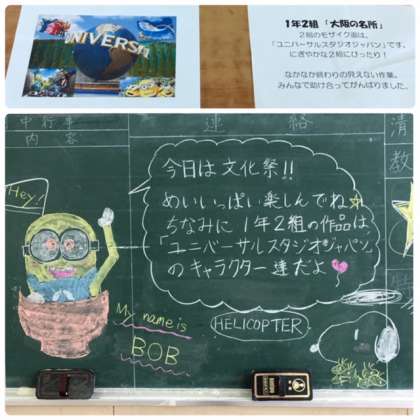 UNIVERSA
1年2組 「大阪の名所」
2組のモザイク画は、
「ユニバーサルスタジオジャパン」です。
にぎやかな2組にぴったり!
なかなか終わりの見えない作業。
みんなで助け合ってがんばりました。
中行事
内容
連絡
清
教
Hey!
今日は文化祭!!
めいいっぱい楽しんでね☆
ちなみに1年2組の作品は
「ユニバーサルスタジオジャパン」
のキャラクター達だよ
My name is
BOB
HELICOPTER